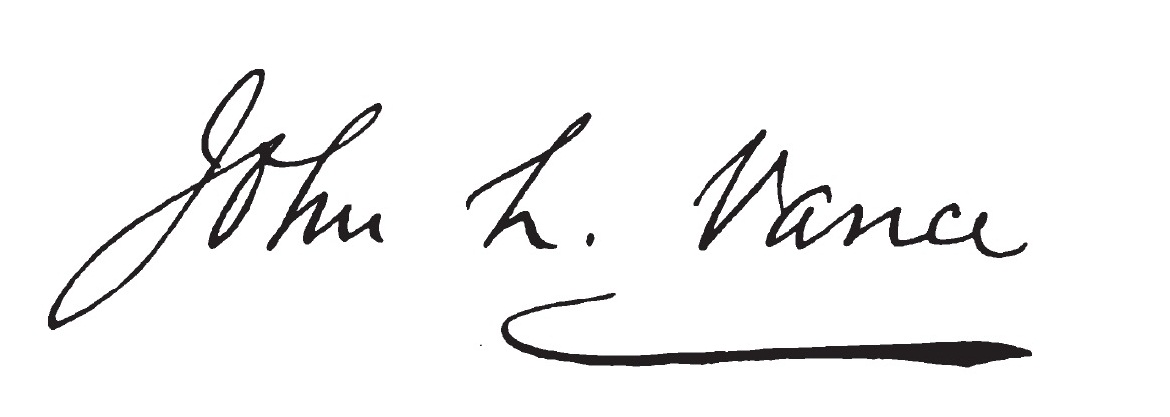 John L. Vance